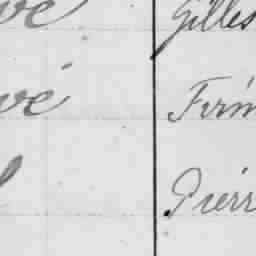 ve Gilles
vé Firm
Pierr